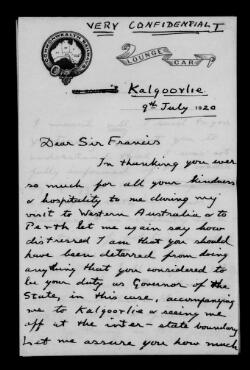 VERY CONFIDENTIAL I
COMMONWEALTH RAILWAYS
LOUNGE CAR
Kalgoorlie
9th July 1920
Dear Sir Francis
In thanking you ever
so much for all your kindness
& hospitality to me during my
visit to Western Australia & to
Perth let me again say how
distressed I am that you should
have been deterred from doing
anything that you considered to
be your duty as Governor of the
State, in this case, accompanying
me to Kalgoorlie & seeing me
off at the inter-state boundary
Let me assure you how much